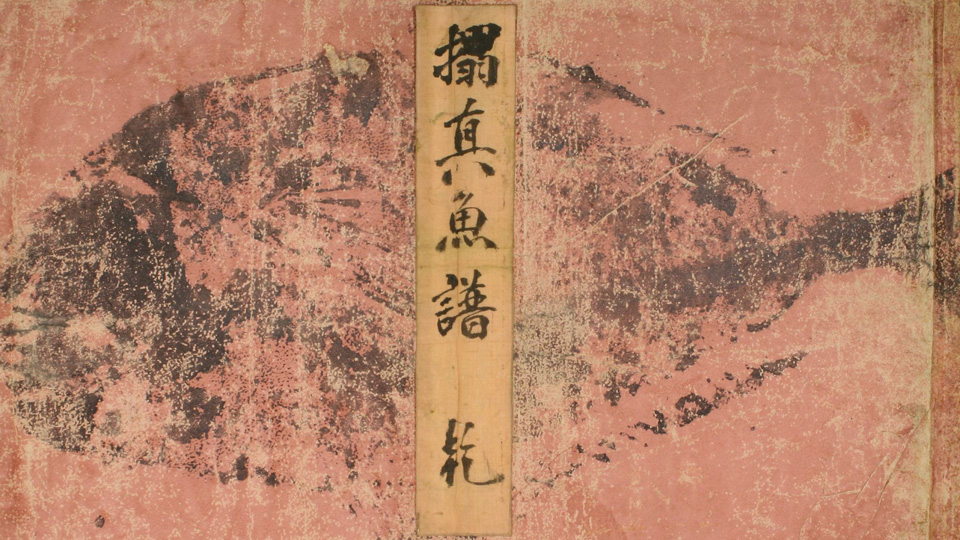 搨真魚譜 乾